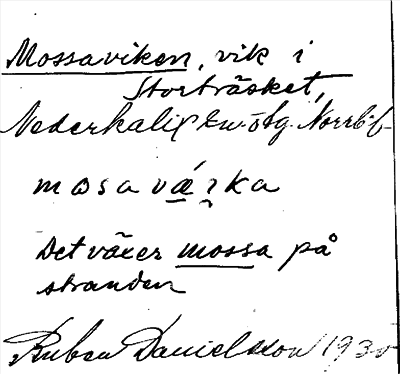 Mossaviken, vik i
Storträsket,
Nederkalix sn. ö fg. Norrb.
mosa vǽ̱ɩ̯ka
Det växer mossa på
stranden
Ruben Danielsson 1930